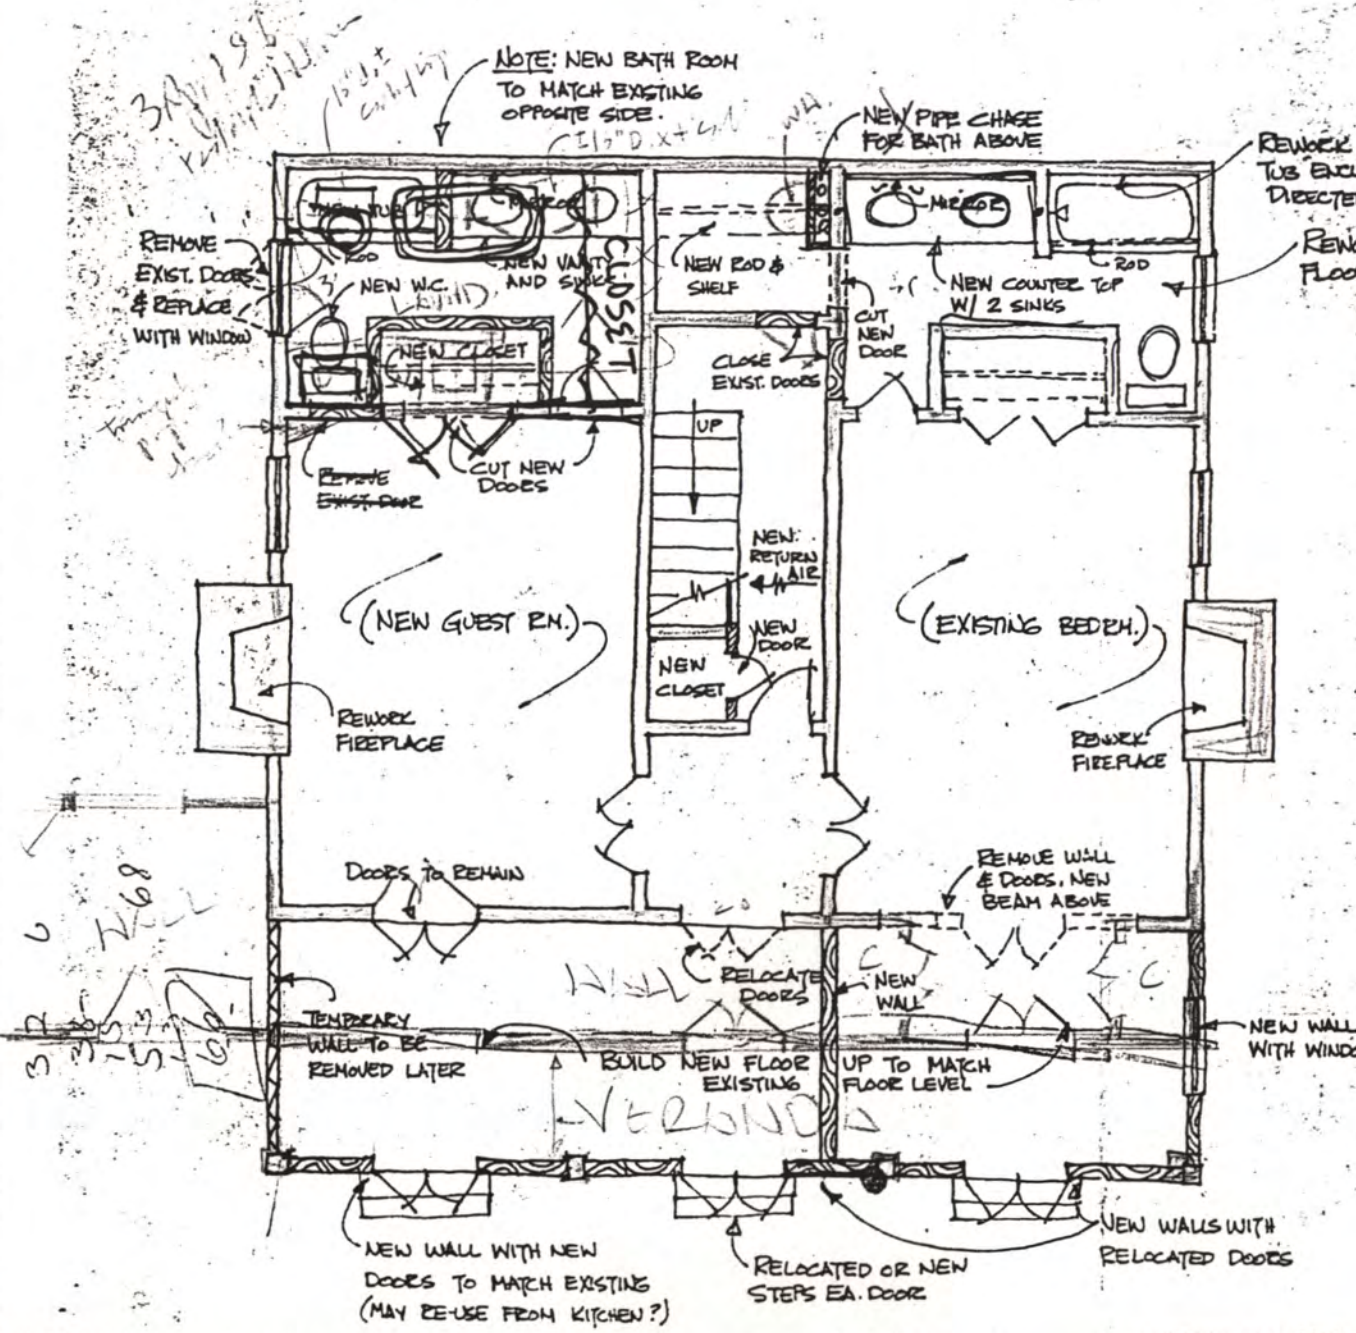 NOTE: NEW BATH ROOM
TO MATCH EXISTING
OPPOSITE SIDE.
NEW PIPE CHASE
FOR BATH ABOVE
REWORK
TUB ENCL
DIRECTE
REMOVE
EXIST. DOORS
& REPLACE
WITH WINDOW
MIRROR
ROD
NEW W.C.
NEW VANITY
AND SINKS
CLOSET
NEW CLOSET
NEW ROD &
SHELF
MIRROR
ROD
NEW COUNTER TOP
W/ 2 SINKS
CUT
NEW
DOOR
CLOSE
EXIST. DOORS
REWO
FLOO
REMOVE
EXIST. DOOR
CUT NEW
DOORS
UP
NEW
RETURN
AIR
(NEW GUEST RM.)
(EXISTING BEDRM.)
NEW
DOOR
NEW
CLOSET
REWORK
FIREPLACE
REWORK
FIREPLACE
DOORS TO REMAIN
REMOVE WALL
& DOORS. NEW
BEAM ABOVE
68
WALL
WALL
RELOCATE
DOORS
NEW
WALL
C
C
TEMPORARY
WALL TO BE
REMOVED LATER
BUILD NEW FLOOR UP TO MATCH
EXISTING FLOOR LEVEL
NEW WALL
WITH WINDO
VERANDA
NEW WALL WITH NEW
DOORS TO MATCH EXISTING
(MAY RE-USE FROM KITCHEN?)
RELOCATED OR NEW
STEPS EA. DOOR
NEW WALLS WITH
RELOCATED DOORS